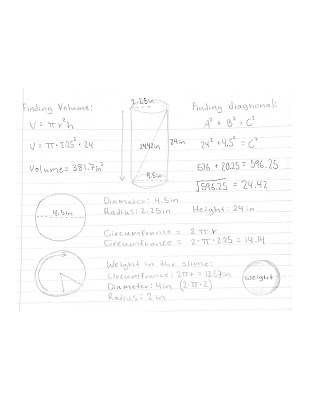 Finding Volume:
V = πr²h
V = π·2.25²·24
Volume = 381.7in³
2.25in
24.42in
24in
4.5in
Finding diagnonal:
A² + B² = C²
24² + 4.5² = C²
576 + 20.25 = 596.25
√596.25 = 24.42
4.5in
Diameter: 4.5in
Radius: 2.25in Height: 24in
Circumfrance = 2πr
Circumfrance = 2·π·2.25 = 14.14
Weight in the slime:
Circumfrance: 2πr = 12.57in
Diameter: 4in (2·π·2)
Radius: 2in
weight